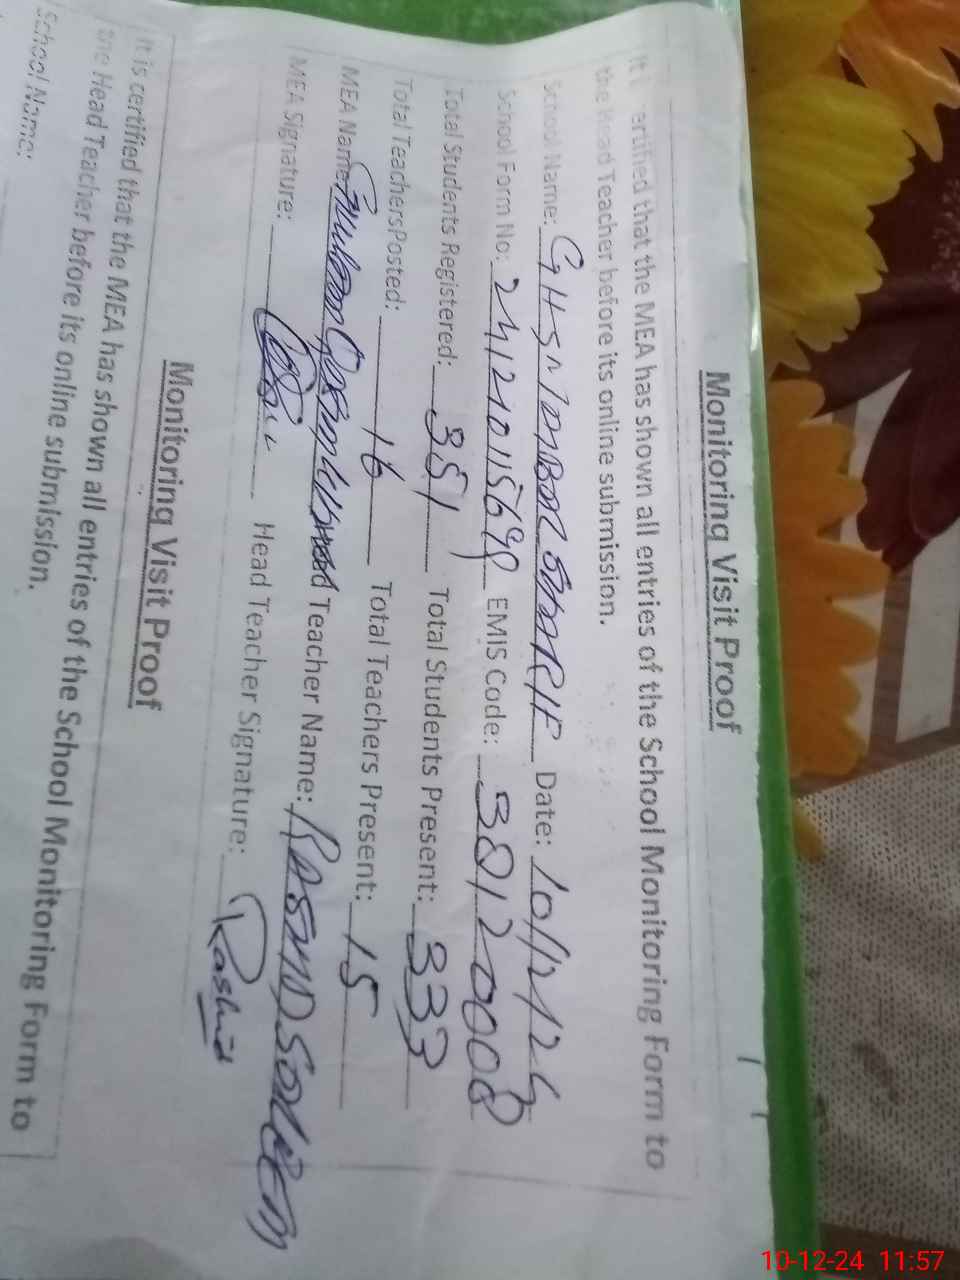 Monitoring Visit Proof
ertified that the MEA has shown all entries of the School Monitoring Form to
the Head Teacher before its online submission.
School Name: GHSN Date: 10/12/24
School Form No: EMIS Code: 38120008
Total Students Registered: 351 Total Students Present: 333
Total TeachersPosted: 16 Total Teachers Present: 15
MEA Name: Teacher Name: RASHID SALEEM
MEA Signature: Head Teacher Signature: Rashid
Monitoring Visit Proof
It is certified that the MEA has shown all entries of the School Monitoring Form to
the Head Teacher before its online submission.
School Name:
10-12-24 11:57